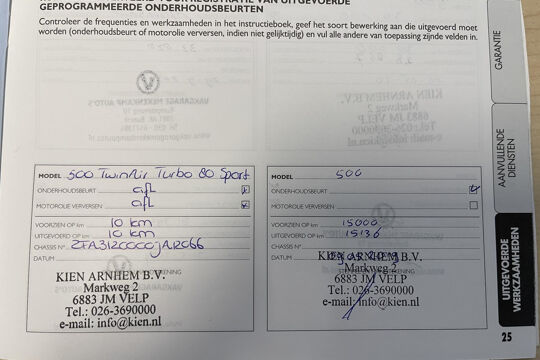 GEPROGRAMMEERDE ONDERHOUDSBEURTEN
Controleer de frequenties en werkzaamheden in het instructieboek, geef het soort bewerking aan die uitgevoerd moet
worden (onderhoudsbeurt of motorolie verversen, indien niet gelijktijdig) en vul alle andere van toepassing zijnde velden in.
MODEL 500 TwinAir Turbo 80 Sport
ONDERHOUDSBEURT afl
MOTOROLIE VERVERSEN afl
VOORZIEN OP km 10 km
UITGEVOERD OP km 10 km
CHASSIS N°
DATUM
KIEN ARNHEM B.V.
Markweg 2
6883 JM VELP
Tel.: 026-3690000
e-mail: info@kien.nl
MODEL 500
ONDERHOUDSBEURT
MOTOROLIE VERVERSEN
VOORZIEN OP km 15000
UITGEVOERD OP km 15136
CHASSIS N°
DATUM
KIEN ARNHEM B.V.
Markweg 2
6883 JM VELP
Tel.: 026-3690000
e-mail: info@kien.nl
GARANTIE
AANVULLENDE
DIENSTEN
UITGEVOERDE
WERKZAAMHEDEN
25